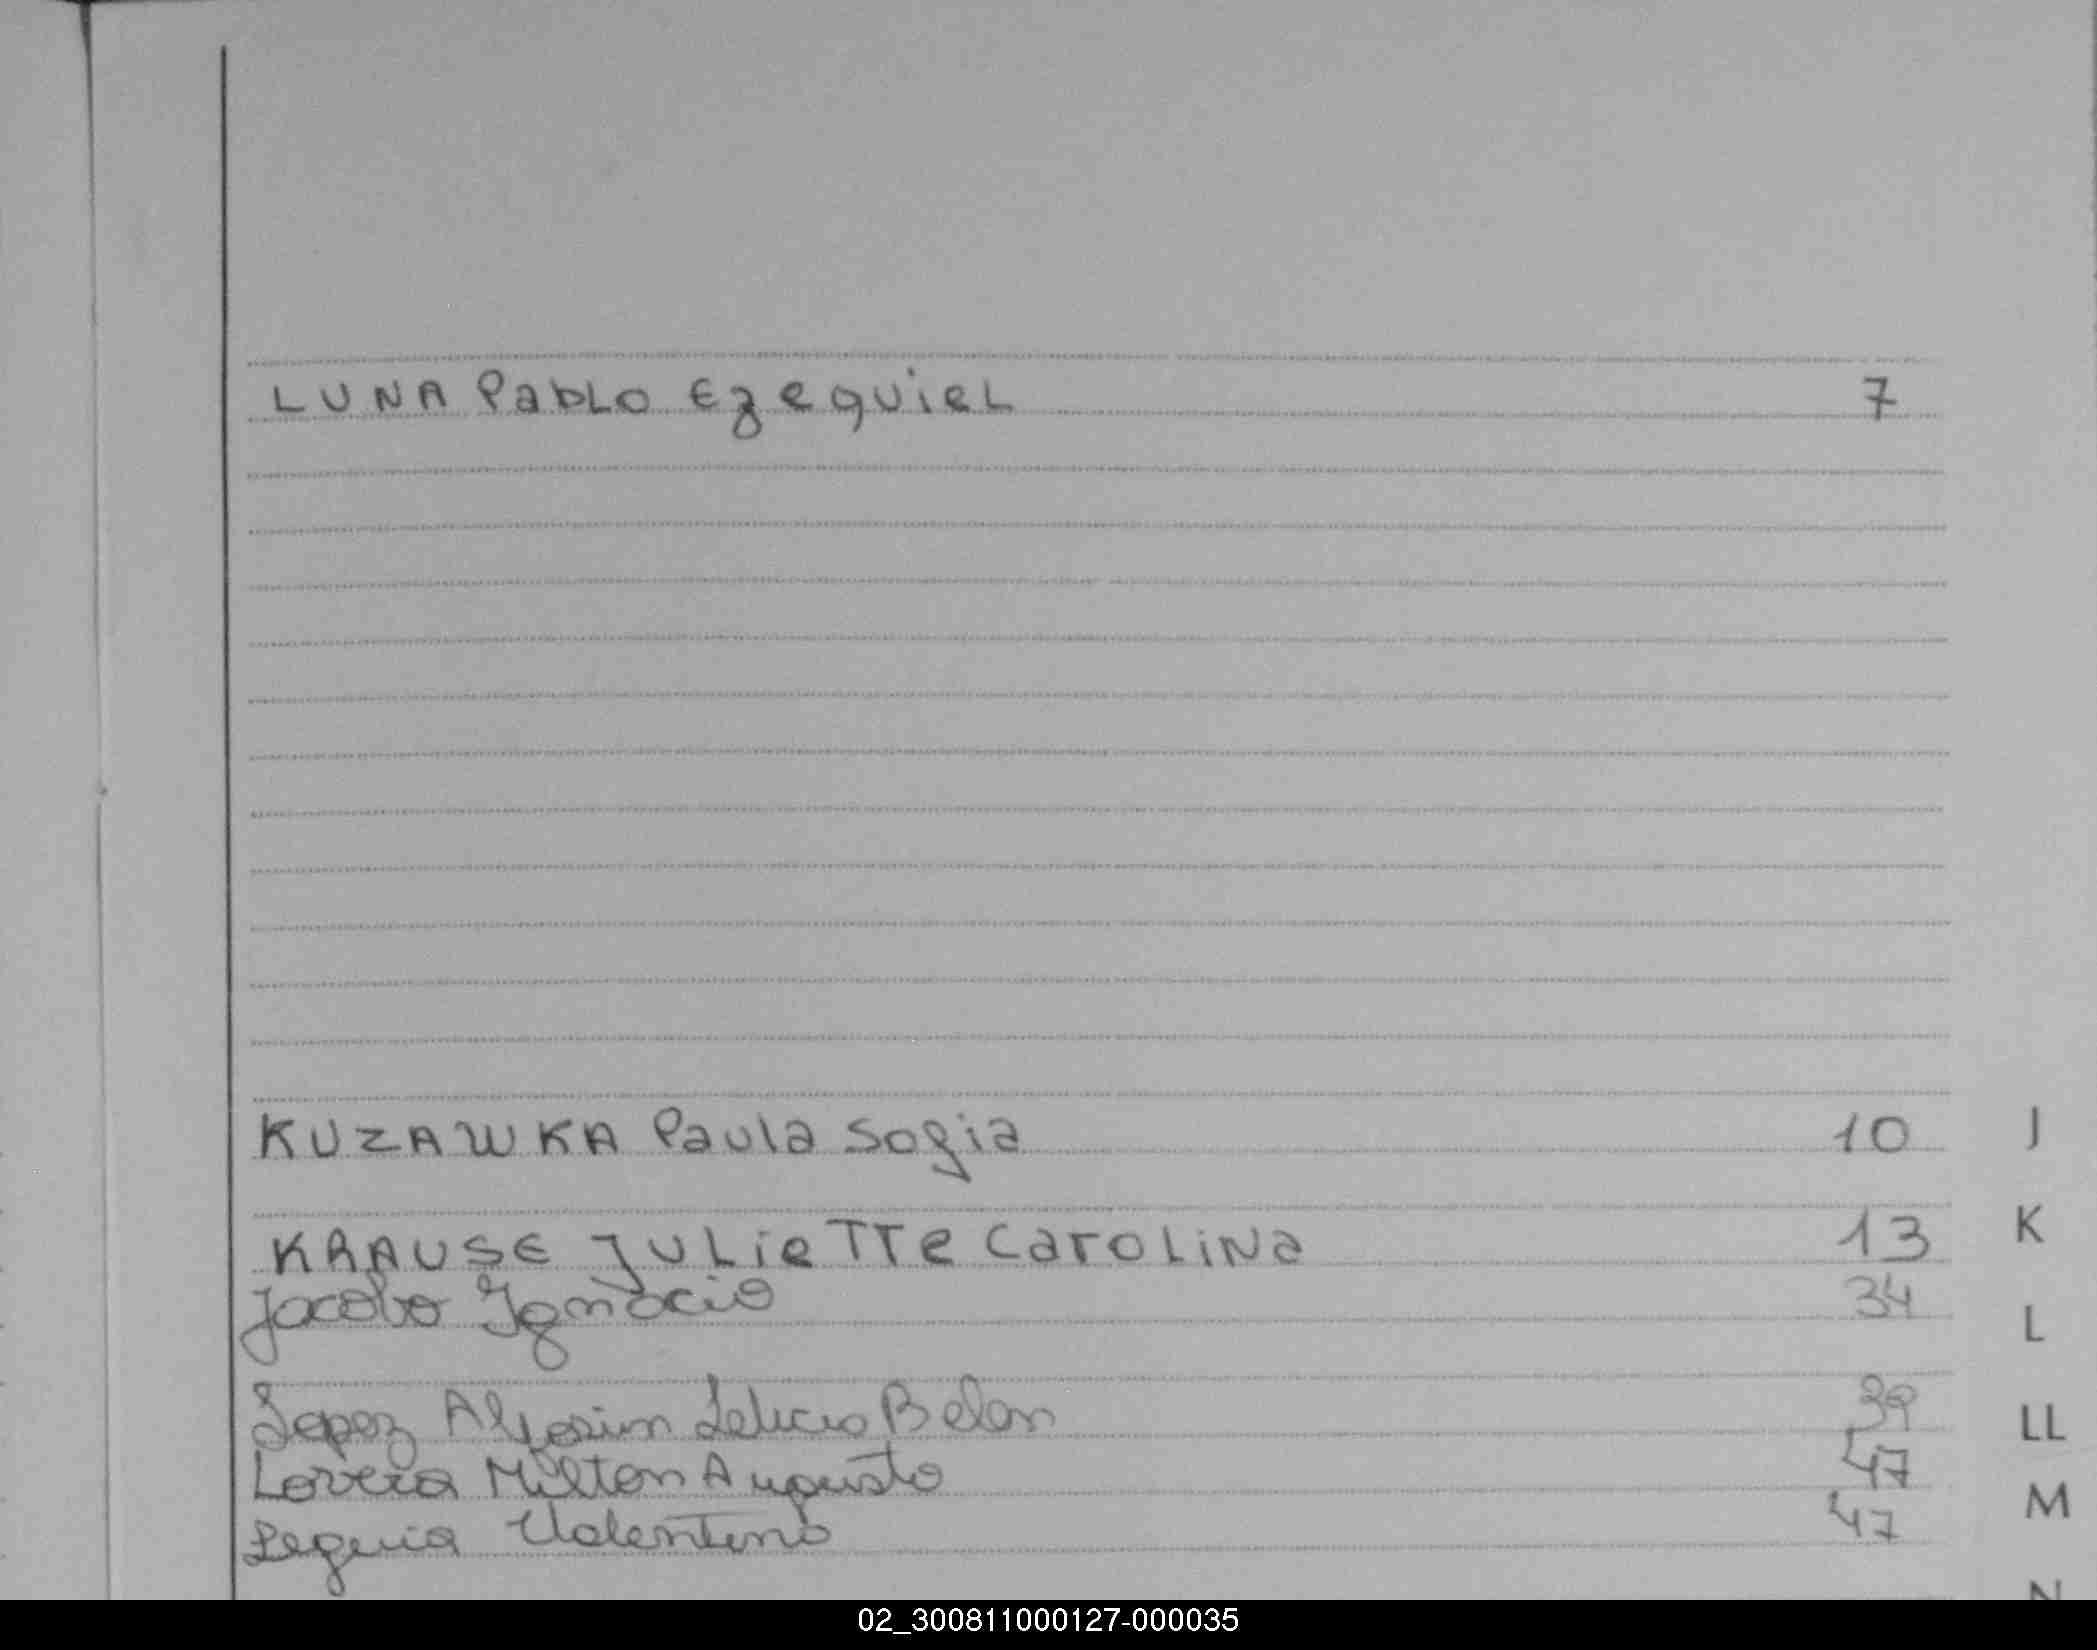 LUNA Pablo Ezequiel 7
KUZAWKA Paula Sofia 10 J
K
KRAUSE JULieTTe CaroLiNa 13
Jacobo Ignacio 34
L
Lopez Belen 39
LL
Lovera Milton Augusto 47
M
Leguia Valentino 47
N
02_300811000127-000035